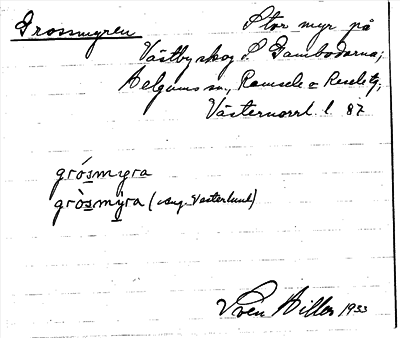 Grossmyren
Stor myr på
Västbyskog S. Gambodarna;
Helgums sn, Ramsele o Resele tg,
Västernorrl. l 87
grósmyra
gròsmỳra (Aug. Vesterlund)
Sven Hillar 1933